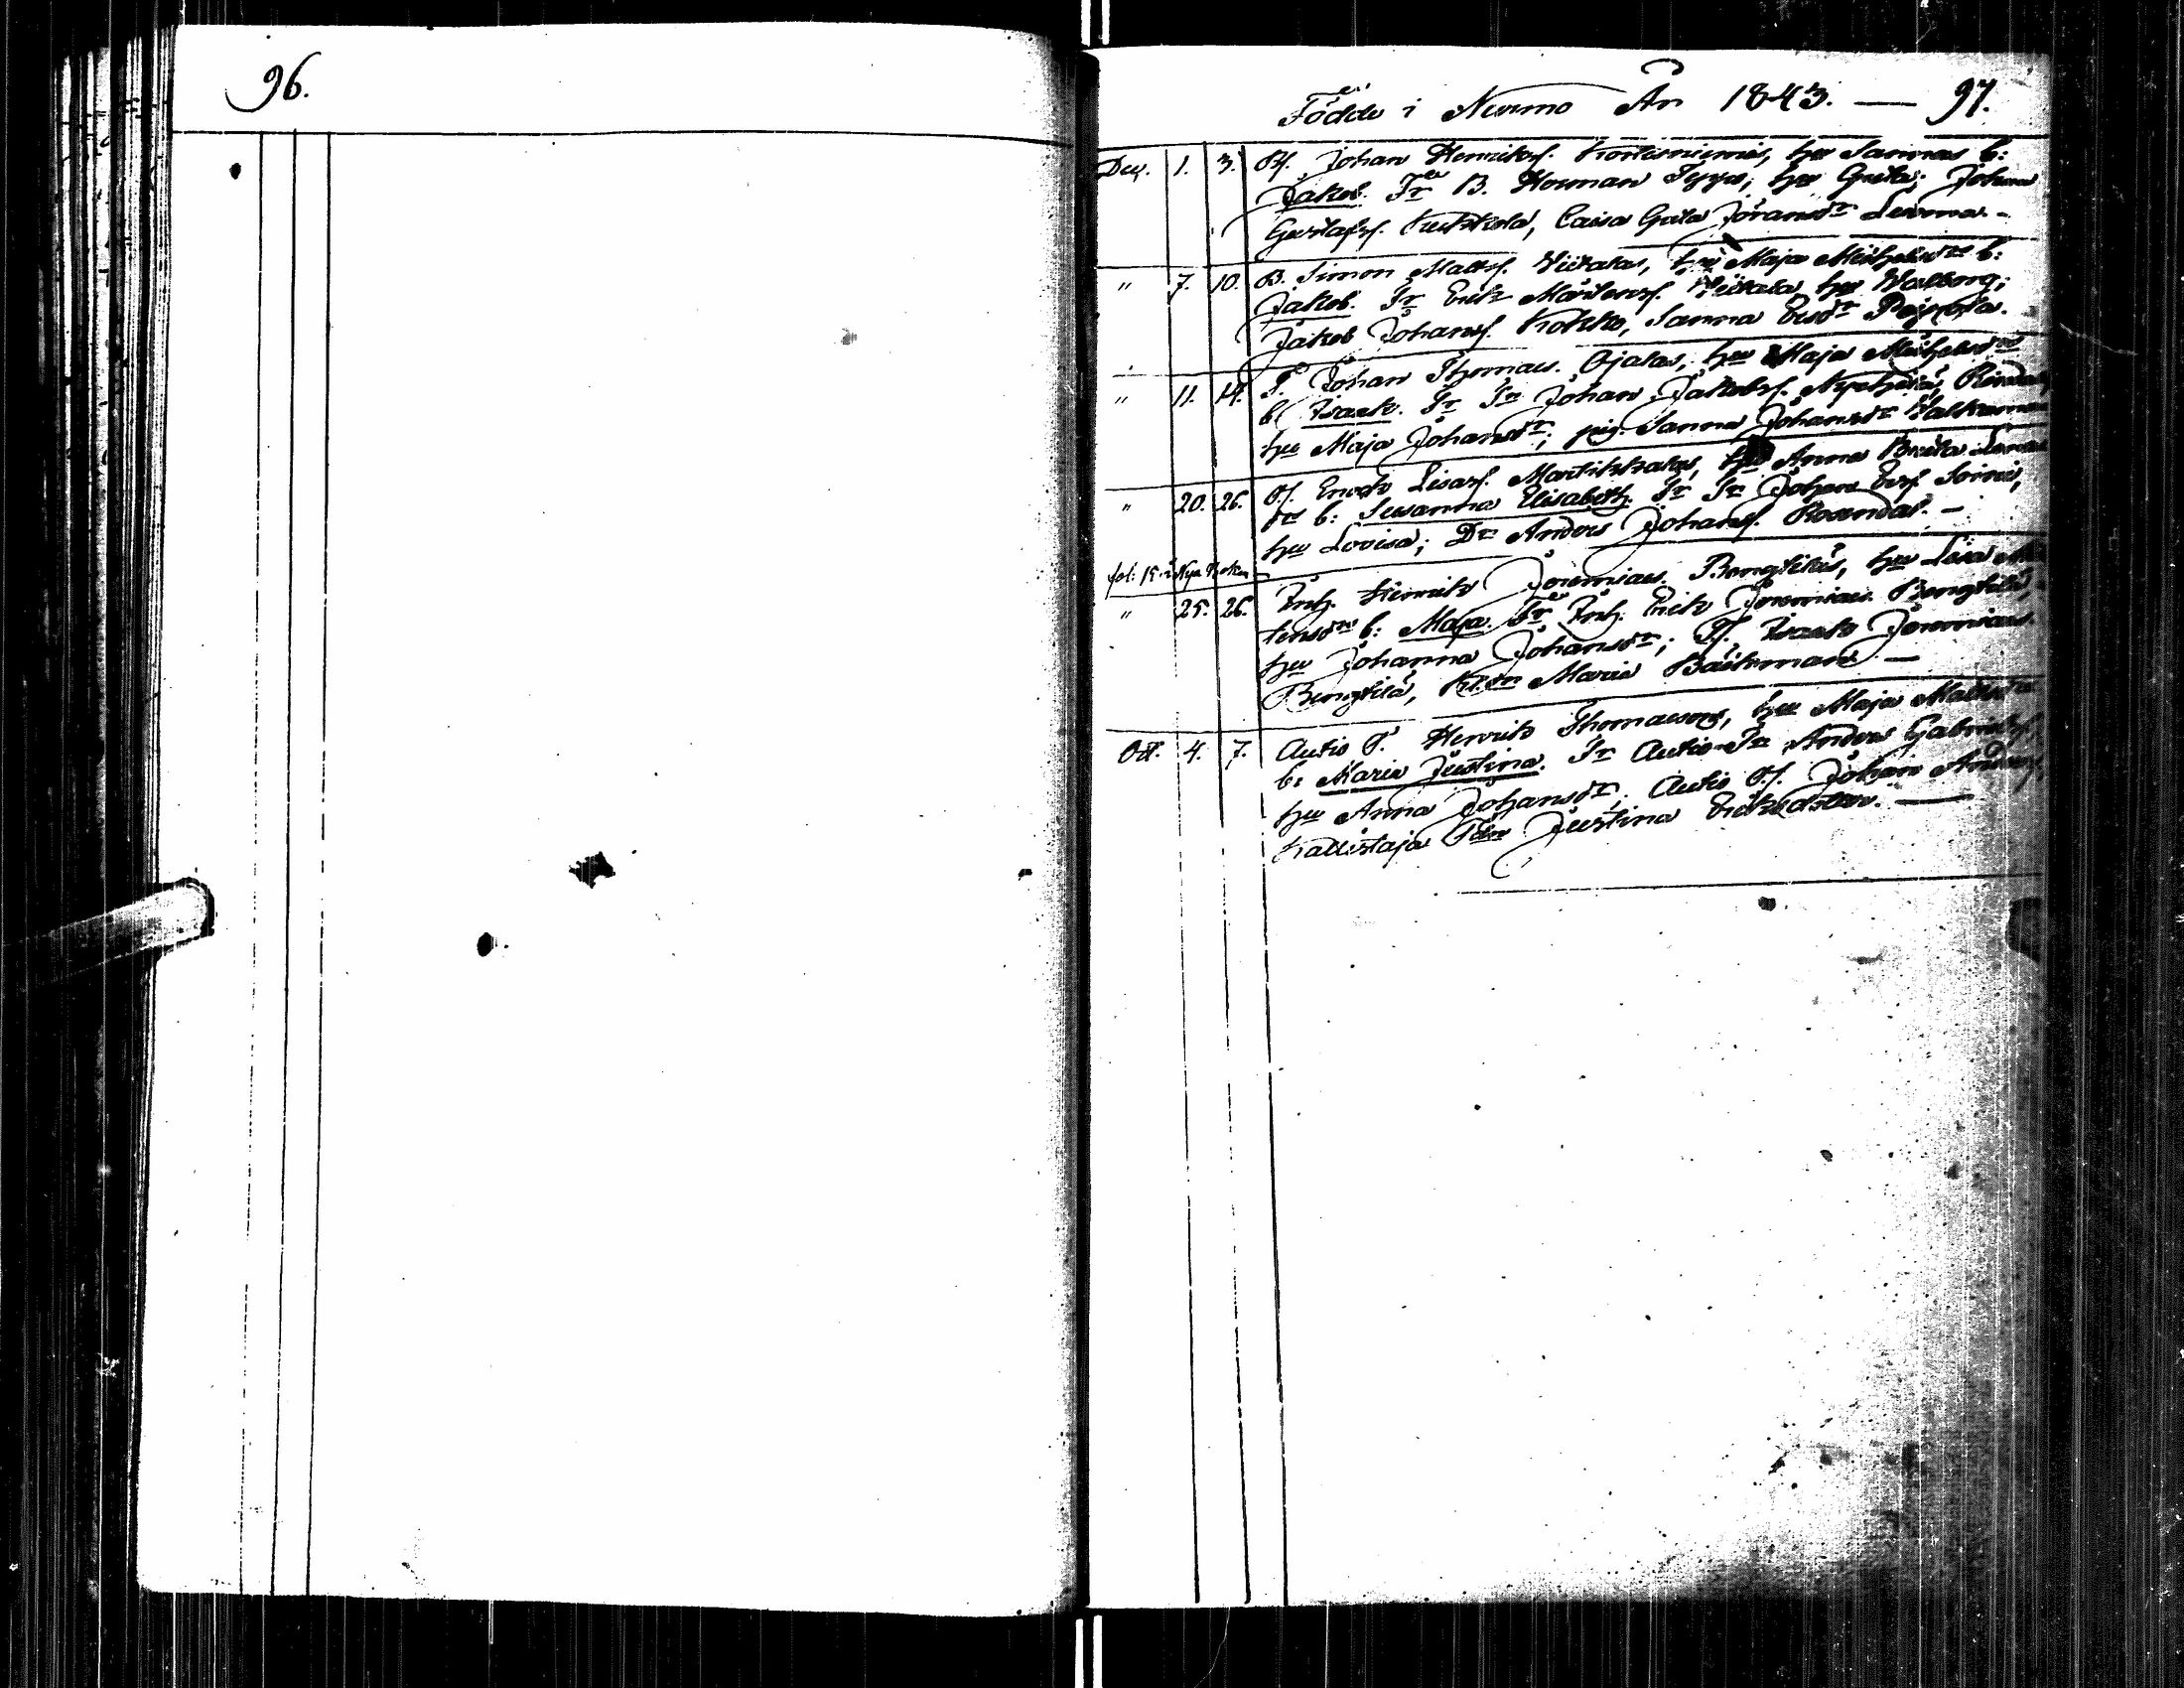 96.
Födde i Nurmo År 1843. — 97.
Dec. 1. 3. Bs. Johan Henrikss. Kortesniemis, hu Sannas b:
Jakob. Tr B. Herman Seppa, hu Greta; Johan
Gustafss. Kuckkola, Caisa Greta Göransdr Leroma. -
" 7. 10. B. Simon Mattss. Viitalas, hu Maja Michelsdrs b:
Jakob. Tr Erik Mårtenss. Viitala hu Walborg;
Jakob Johanss. Kokko, Sanna Ersdr
" 11. 14. T. Johan Thomaes. Ojalas, hu Maja Michelsdrs
b. Isaak. Tr Tr Johan Jakobss.
hu Maja Johansdr; pig. Sanna Johansdr
" 20. 26. Bs. Enoch Lisass. Martikkalas, hu Anna Brita
drs b: Susanna Elisabeth. Tr Tr Johan Ers. Soini,
hu Lovisa; Dr Anders Johanss. Rosendal. -
fol: 15. i Nya Boken
" 25. 26. Inh. Henrik Jeremiaes. Bengtiläs, hu Lisa
tensdrs b: Maja. Tr Inh. Erik Jeremiaes. Bengtilä,
hu Johanna Johansdr; Bs. Isaak Jeremiaes.
Bengtilä, Maria Backman. —
Oct. 4. 7. Autio T. Henrik Thomaesons, hu Maja Mattsdrs
b: Maria Justina. Tr Autio-Tr Anders Gabrielss.
hu Anna Johansdr, Autio Bs. Johan Anderss.
Kallistaja Tdr Justina Eriksdotter. —